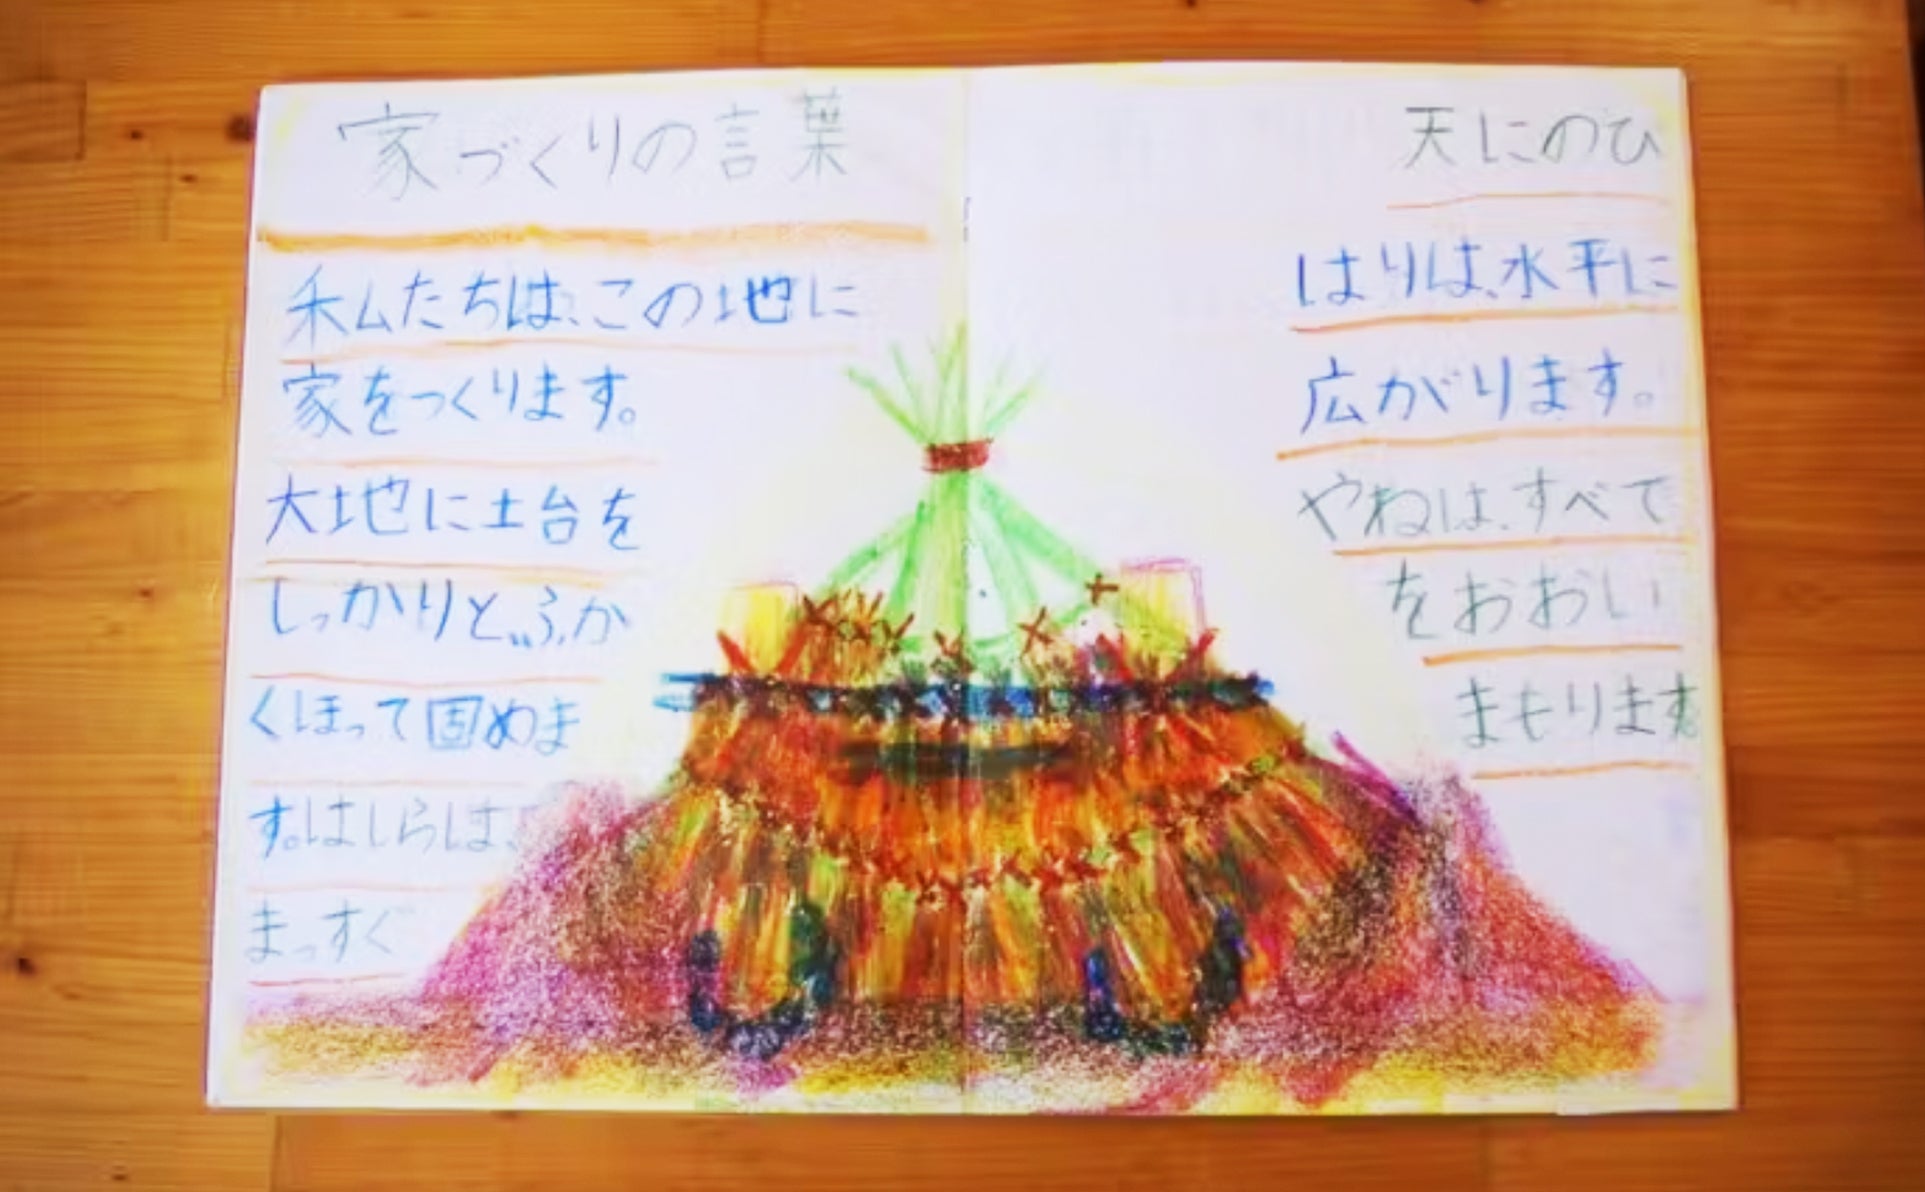 家づくりの言葉
私たちは、この地に
家をつくります。
大地に土台を
しっかりと、ふか
くほって固めま
す。はしらは、
まっすぐ
天にのび
はりは、水平に
広がります。
やねは、すべて
をおおい
まもります。